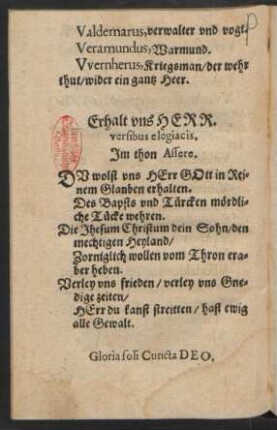 Valdemarus, verwalter vnd vogt.
Veramundus, Warmund.
VVernherus, Kriegsman/der wehr
thut/wider ein gantz Heer.
Erhalt vns HERR.
versibus elegiacis.
Im thon Assere.
DV wolst vns HErr GOtt in Rei-
nem Glauben erhalten.
Des Bapsts vnd Türcken mördli-
che Tücke wehren.
Die Jhesum Christum dein Sohn/den
mechtigen Heyland/
Zorniglich wollen vom Thron era-
ber heben.
Verley vns frieden/verley vns Gne-
dige zeiten/
HErr du kanst streitten/hast ewig
alle Gewalt.
Gloria soli Cuncta DEO.